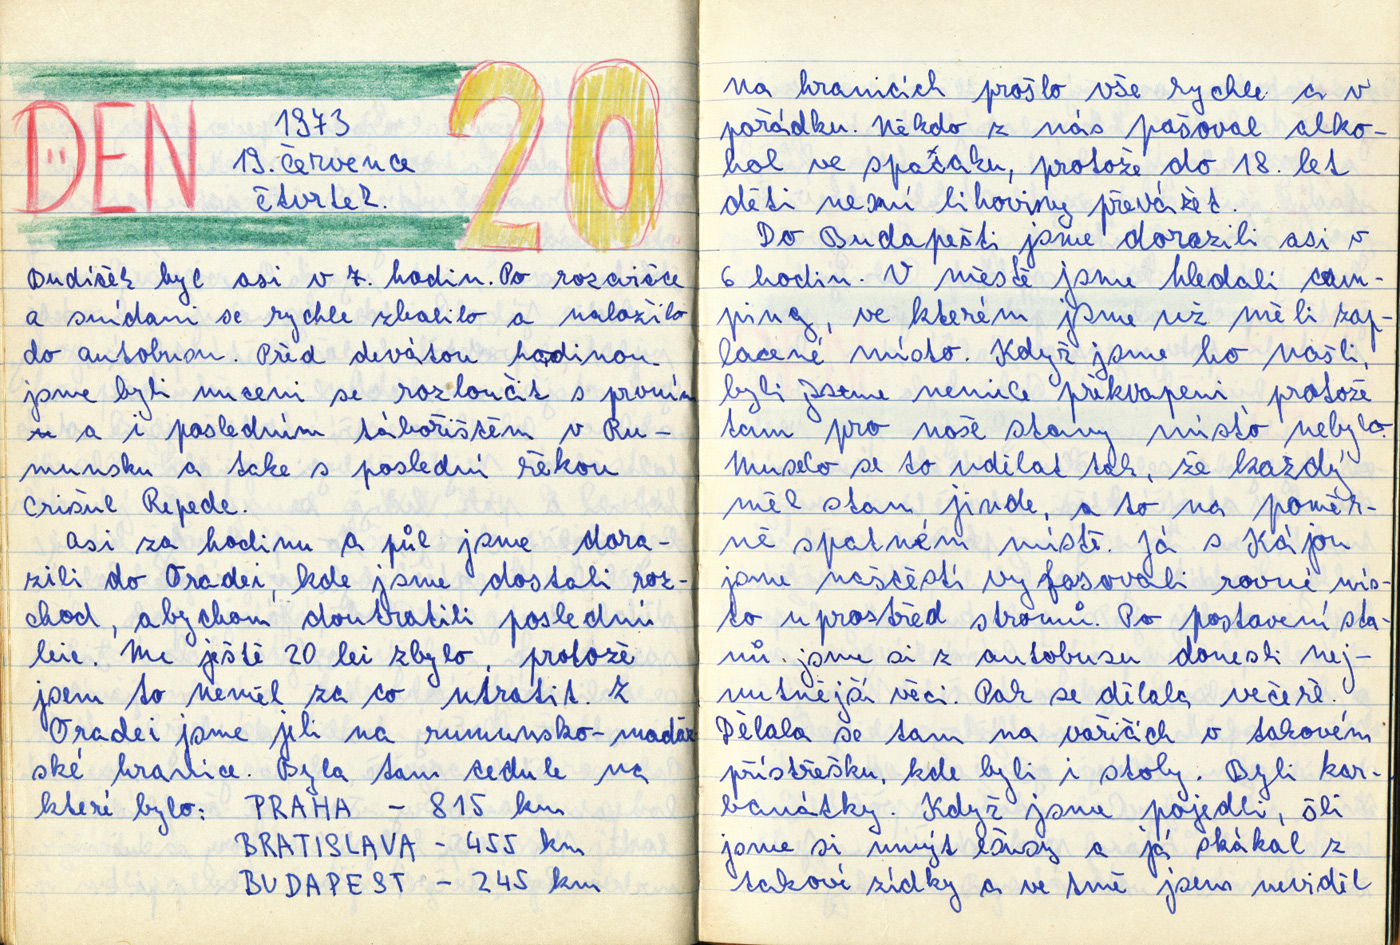 DEN 20
1973
19. července
čtvrtek.
Budíček byl asi v 7. hodin. Po rozcvičce
a snídani se rychle zbalilo a naložilo
do autobusu. Před devátou hodinou
jsme byli nuceni se rozloučit s prvním
a i posledním tábořištěm v Ru-
munsku a take s poslední řekou
Crišul Repede.
asi za hodinu a půl jsme dora-
zili do Oradei, kde jsme dostali roz-
chod, abychom doutratili poslední
leie. Me ještě 20 lei zbylo, protože
jsem to neměl za co utratit. Z
Oradei jsme jeli na rumunsko-maďar
ské hranice. Byla tam cedule na
které bylo: PRAHA - 815 km
BRATISLAVA - 455 km
BUDAPEST - 245 km
na hranicích prošlo vše rychle a v
pořádku. Někdo z nás pašoval alko-
hol ve spacáku, protože do 18. let
děti nesmí lihoviny převážet.
Do Budapešti jsme dorazili asi v
6 hodin. V městě jsme hledali cam-
ping, ve kterém jsme už měli zap-
lacené místo. Když jsme ho našli,
byli jsme nemile překvapeni protože
tam pro naše stany místo nebylo.
Muselo se to udělat tak, že každý
měl stan jinde, a to na poměr-
ně špatném místě. Já s Kájou
jsme naštěstí vyfasovali rovné mís-
to uprostřed stromů. Po postavení sta-
nů jsme si z autobusu donesli nej-
nutnější věci. Pak se dělala večeře.
Dělala se tam na vařičích v takovém
přístřešku, kde byli i stoly. Byli kar-
banátky. Když jsme pojedli, šli
jsme si umýt ešusy a já skákal z
takové zídky a ve tmě jsem neviděl